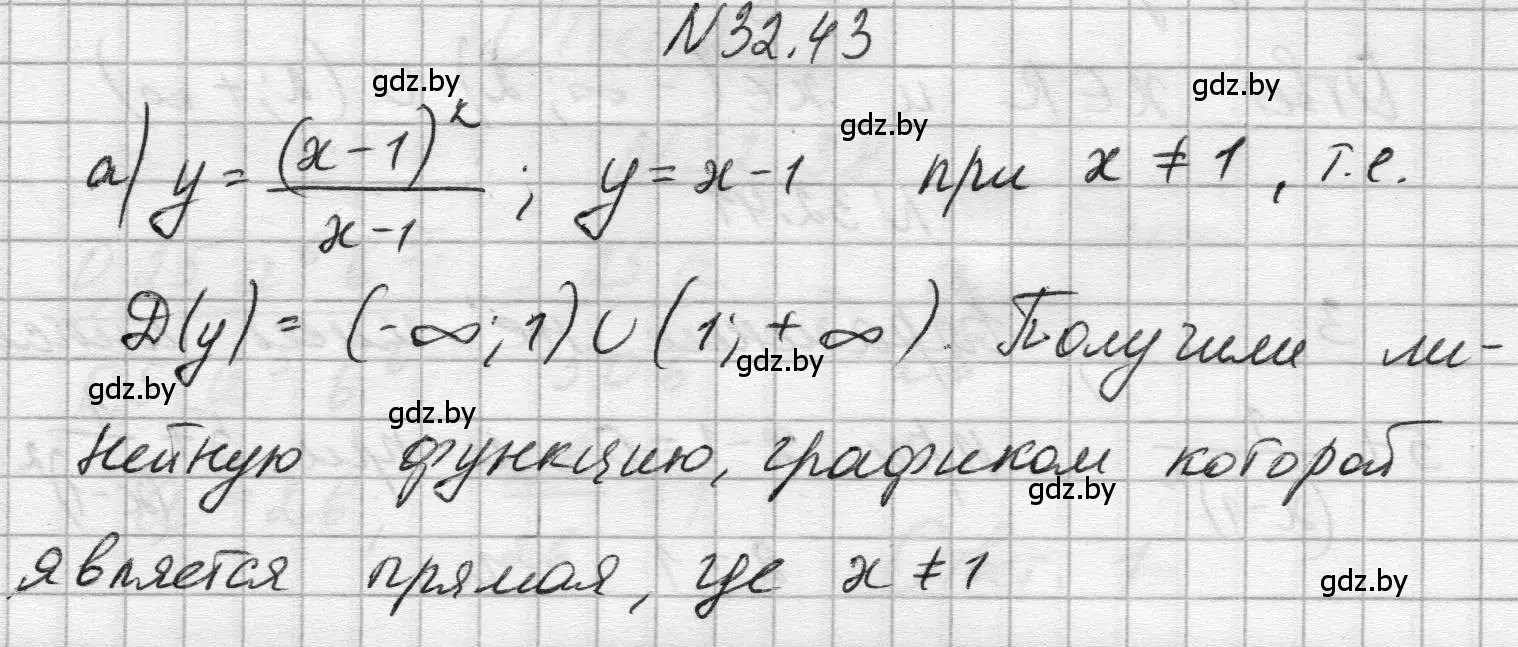 N32.43
gdz.by
gdz.by
gdz.by
а) y = (x-1)² / x-1 ; y = x-1 при x ≠ 1, т.е.
Д(y) = (-∞; 1) ∪ (1; +∞). Получим ли-
gdz.by
gdz.by
gdz.by
нейную функцию, графиком которой
gdz.by
является прямая, где x ≠ 1
gdz.by